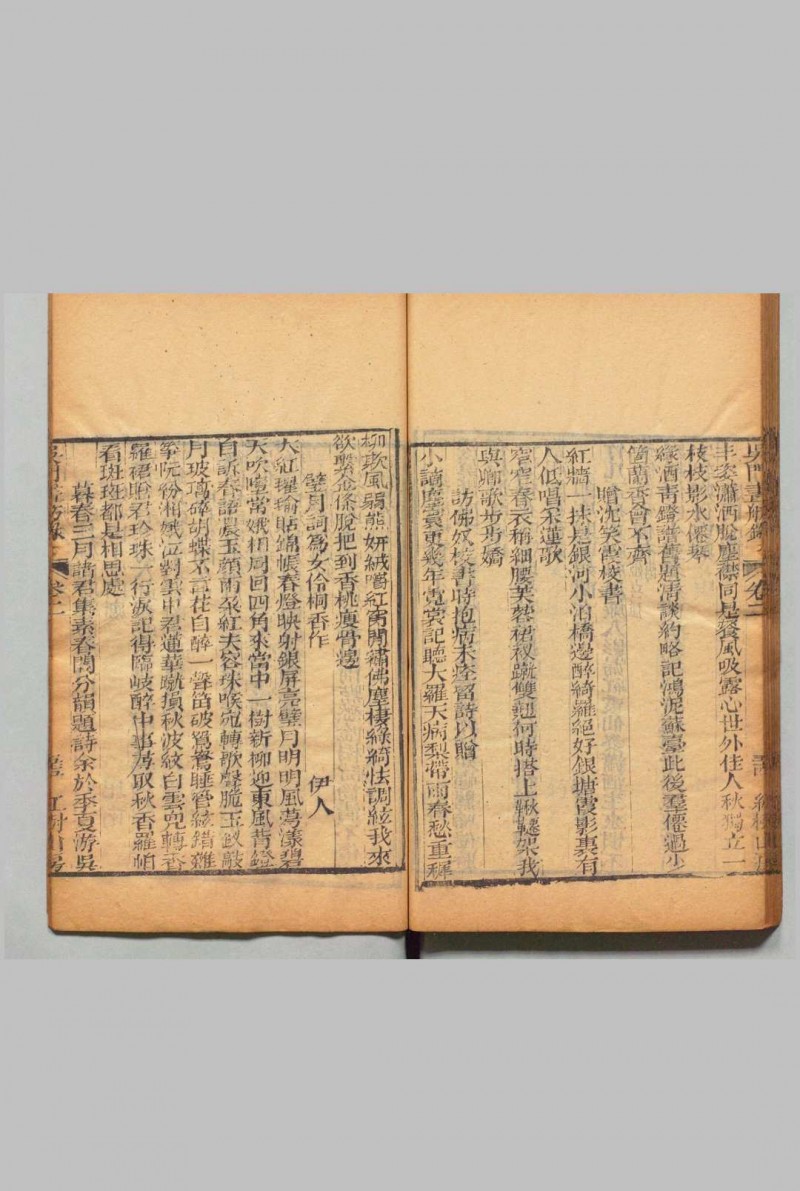 丰姿瀟洒脫塵襟同是餐風吸露心世外佳人秋獨立一
枝枝影水僊琴
綠酒青鐙譜舊題清談約略記鴻泥蘇臺此後羣僊過少
箇蘭香會不齊
贈沈笑霞校書
紅牆一抹是銀河小泊橋邊醉綺羅絕好銀塘霞影裏有
人低唱采蓮歌
窄窄春衣稱細腰芙蓉裙衩蹴雙翹何時搭上鞦韆架我
與卿歌步步嬌
訪佛奴校書時抱病未痊留詩以贈
小謫塵寰更幾年霓裳記聽大羅天病梨帶雨春愁重稚
柳欹風弱態妍絨唾紅窗閒繡佛塵棲綠綺怯調絃我來
欲繫金條脫把到香桃瘦骨邊
璧月詞為女伶桐香作
伊人
大紅羅貼錦帳春燈映射銀屏亮璧月明明風蕩漾碧
天吹墮常娥相周回四角來當中一樹新柳迎東風背鐙
自訴春語濃玉顏雨采紅夫容珠喉宛轉歌聲脆玉釵敲
月玻璃碎胡蝶不言花自醉一聲笛破鴛鴦睡管絃錯雜
箏阮紛湘娥泣對雲中君蓮華蹴損秋波紋白雲兜轉香
羅裙貽君玲珠一行淚記得臨岐醉中事為取秋香羅帕
看斑斑都是相思處
暮春三月諸君集素春閣分韻題詩余於季夏游吳
吳門畫舫錄
卷二
紅樹山房